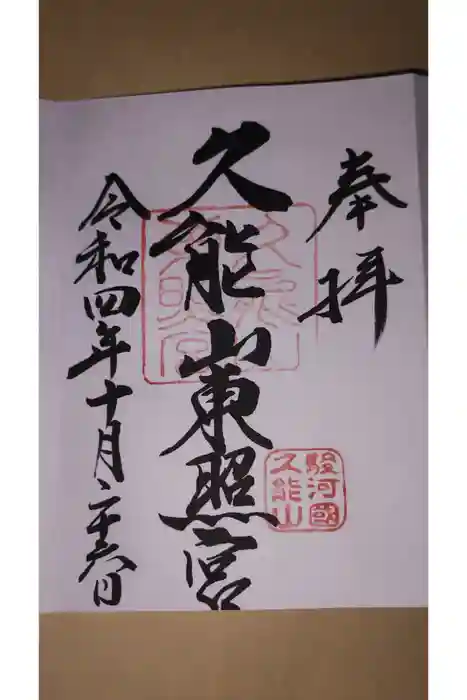 奉拝
駿河國
久能山
久能山東照宮
令和四年十月二十六日